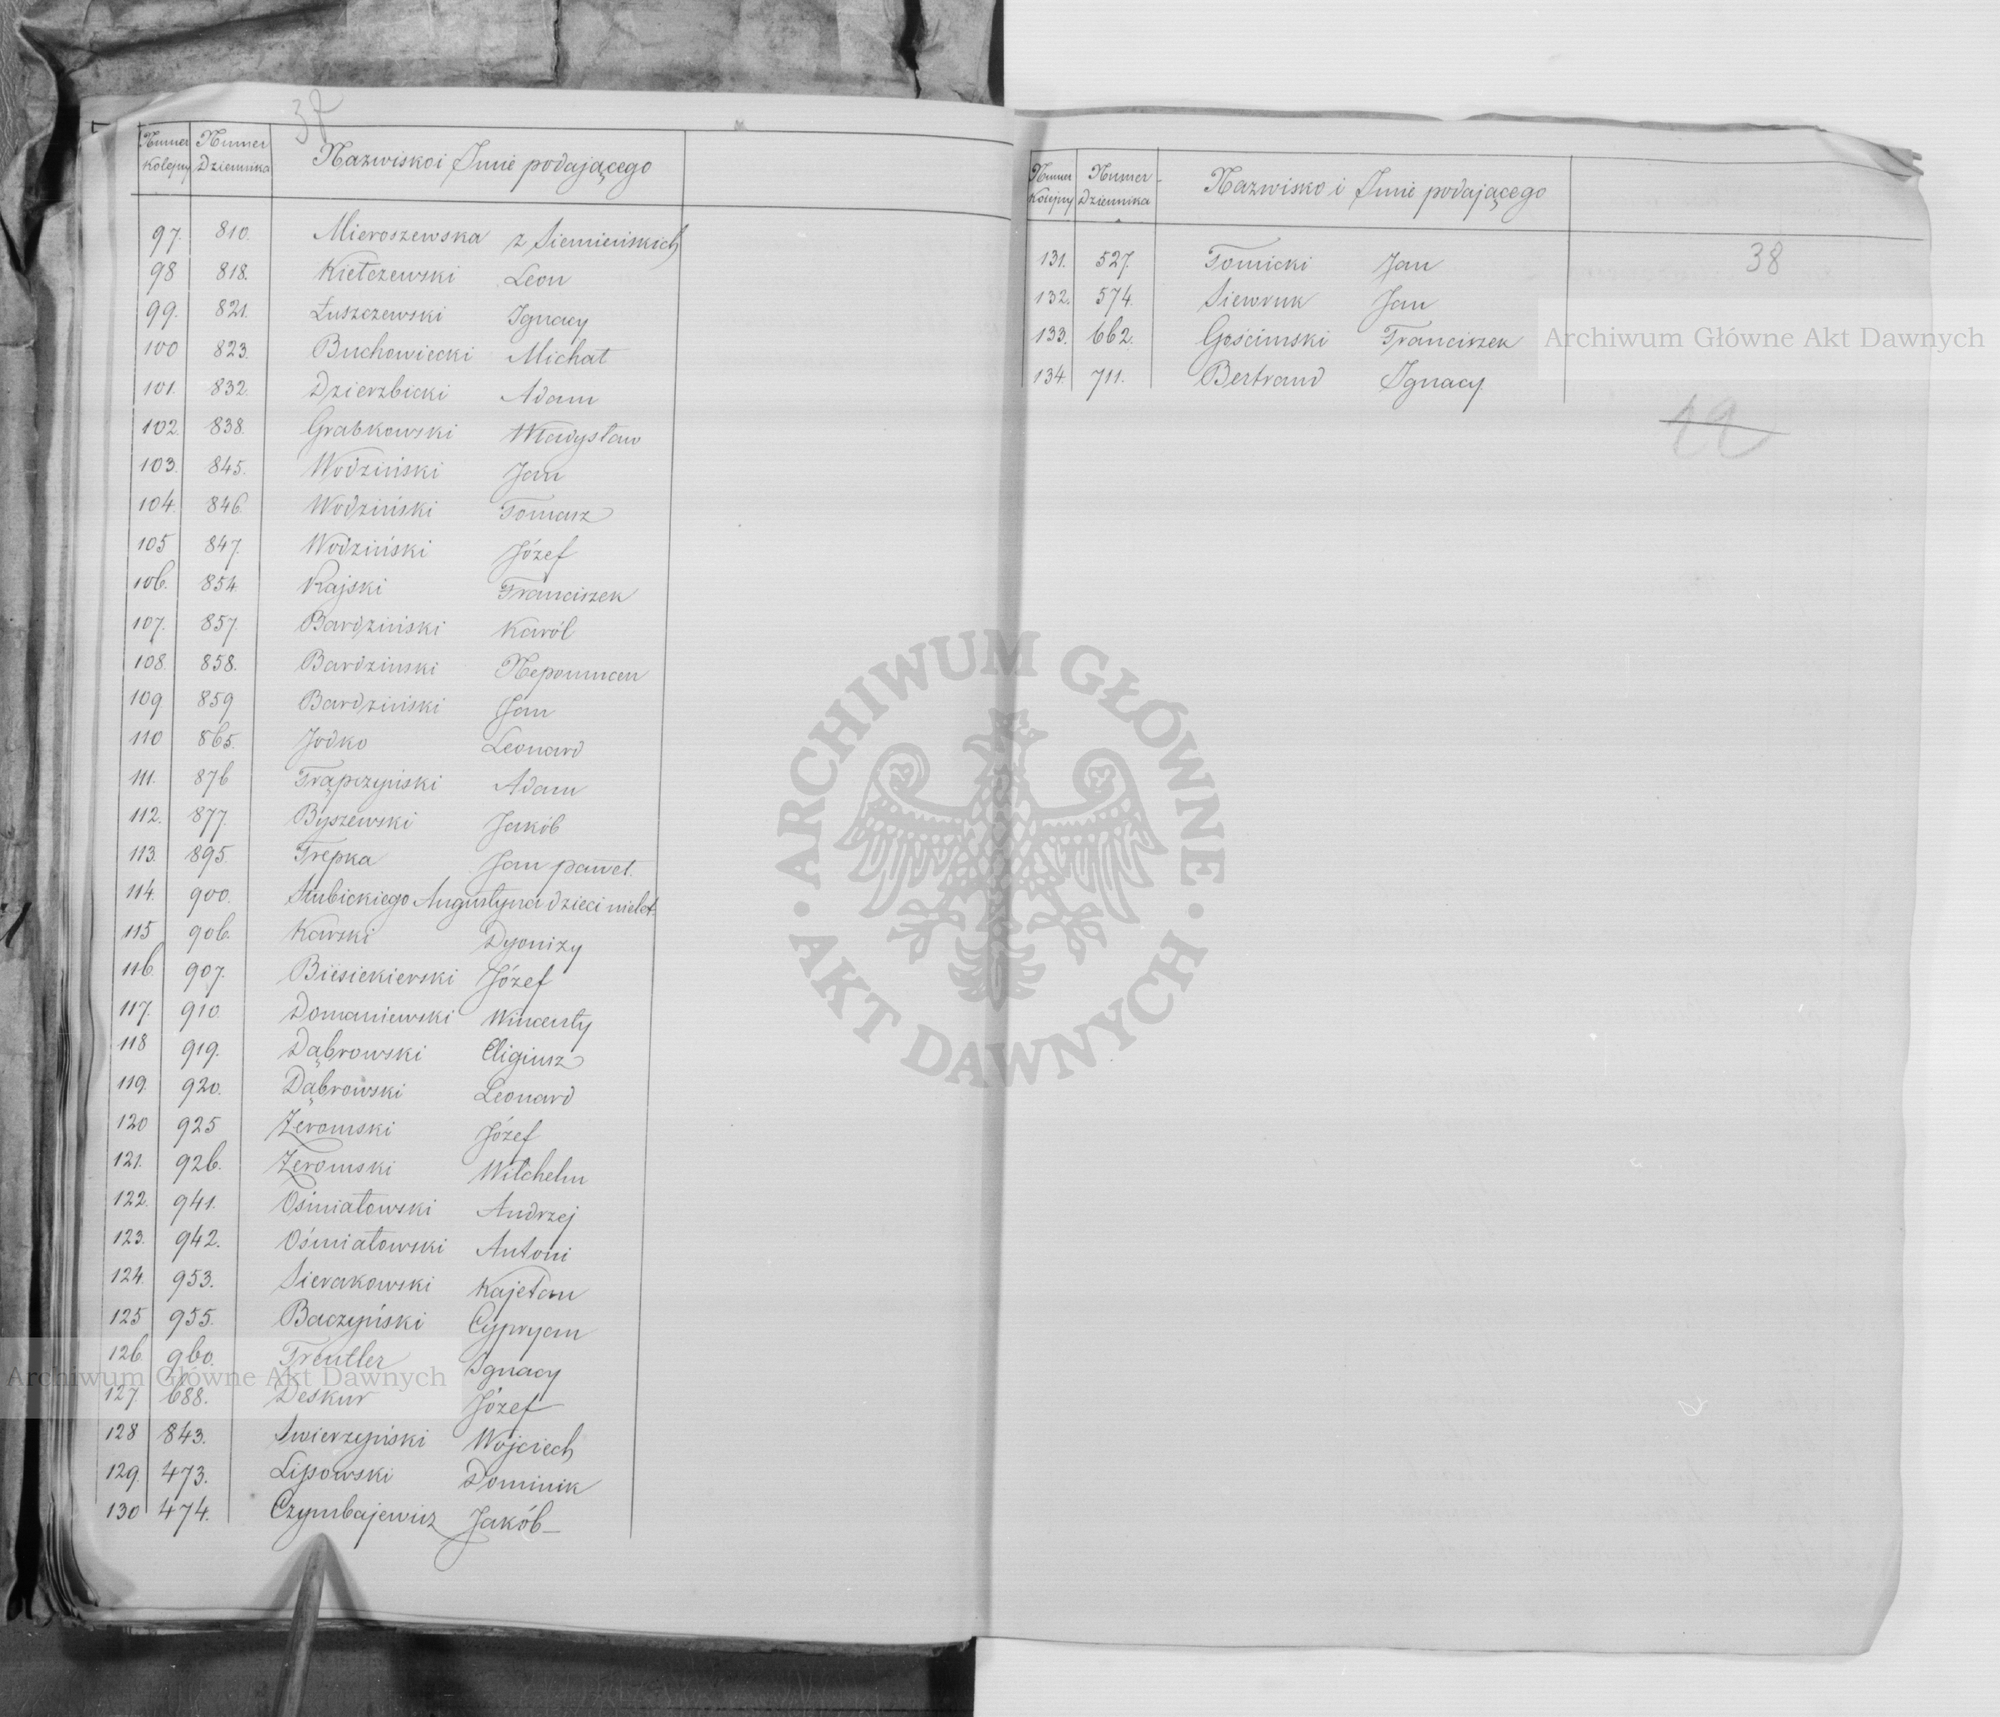 37
Numer Kolejny Numer Dziennika Nazwisko i Imie podającego
97. 810. Mieroszewska z Siemieńskich
98 818. Kiełczewski Leon
99. 821. Łuszczewski Ignacy
100 823. Buchowiecki Michał
101. 832. Dzierzbicki Adam
102. 838. Grabkowski Władysław
103. 845. Wodziński Jan
104. 846. Wodziński Tomasz
105 847. Wodziński Józef
106. 854. Rajski Franciszek
107. 857 Bardziński Karól
108. 858. Bardzinski Nepomucen
109 859 Bardziński Jan
110 865. Jodko Leonard
111. 876 Trąpczyński Adam
112. 877. Byszewski Jakób
113. 895. Trepka Jan paweł.
114. 900. Słubickiego Augustyna dzieci nielet.
115 906. Karski Dyonizy
116 907. Biesiekierski Józef
117. 910 Domaniewski Wincenty
118 919. Dąbrowski Eligiusz
119. 920. Dąbrowski Leonard
120 925 Żeromski Józef
121. 926. Żeromski Wilchelm
122. 941. Ośmiałowski Andrzej
123. 942. Ośmiałowski Antoni
124. 953. Sierakowski Kajetan
125 955. Baczyński Cypryan
126. 960. Treutler Ignacy
127. 688. Deskur Józef
128 843. Swierzyński Wojciech
129. 473. Lipowski Dominik
130 474. Czymbajewicz Jakób
Numer Kolejny Numer Dziennika Nazwisko i Imie podającego
38
131. 527. Tomicki Jan
132. 574. Siewruk Jan
133. 662. Gościmski Franciszek
134. 711. Bertrand Ignacy
Archiwum Główne Akt Dawnych
ARCHIWUM GŁÓWNE
AKT DAWNYCH
Archiwum Główne Akt Dawnych